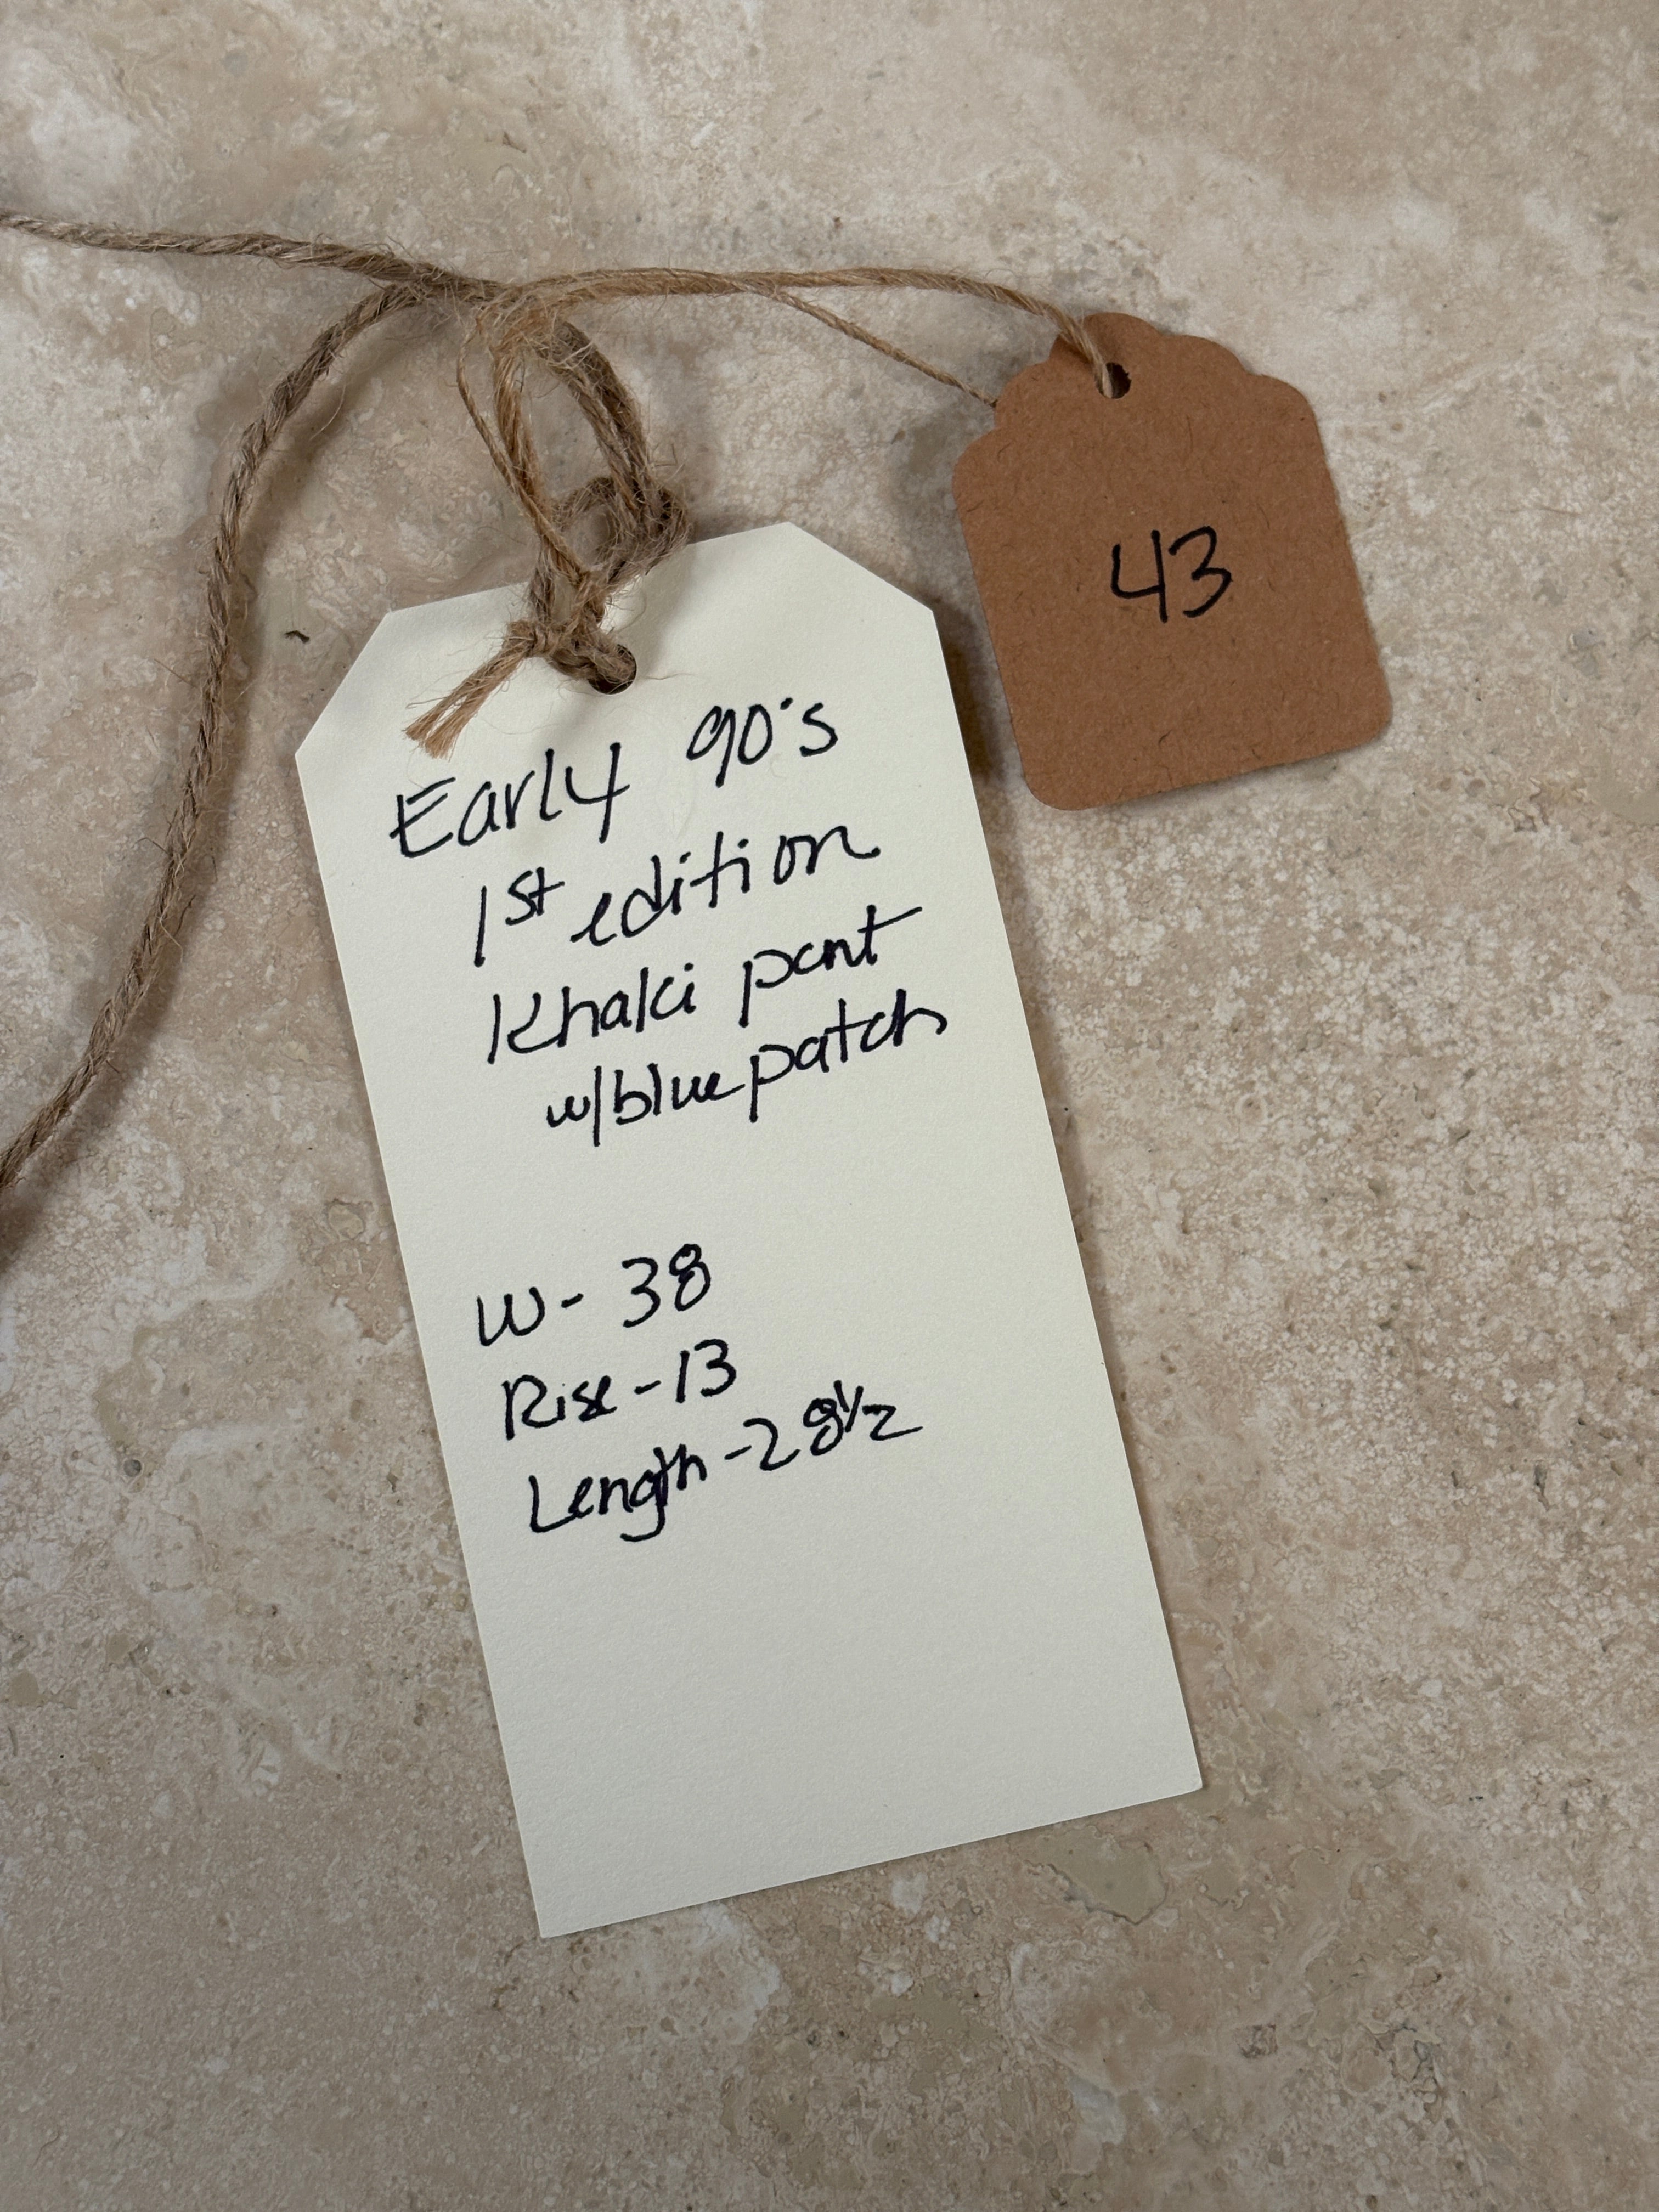 43
Early 90's
1st edition
Khaki pant
w/blue patch
W- 38
Rise -13
Length -28 1/2